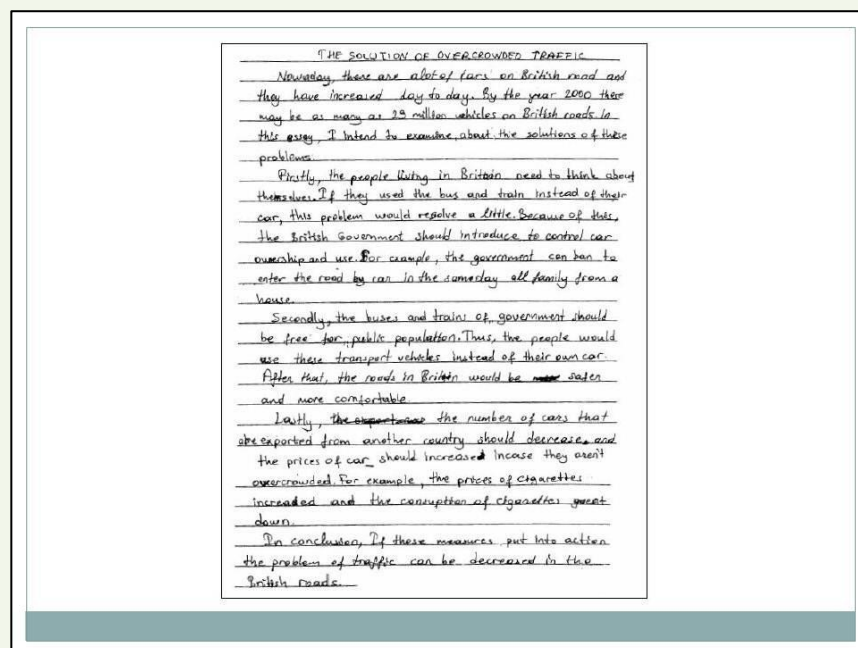 THE SOLUTION OF OVERCROWDED TRAFFIC
Nowaday, there are alot of cars on British road and
they have increased day to day. By the year 2000 there
may be as many as 29 million vehicles on British roads. In
this essay, I intend to examine about the solutions of these
problems.
Firstly, the people living in Britain need to think about
themselves. If they used the bus and train instead of their
car, this problem would resolve a little. Because of this,
the British Government should introduce to control car
ownership and use. For example, the government can ban to
enter the road by car in the sameday all family from a
house.
Secondly, the buses and trains of government should
be free for public population. Thus, the people would
use these transport vehicles instead of their own car.
After that, the roads in Britain would be safer
and more comfortable.
Lastly, the number of cars that
are exported from another country should decrease and
the prices of car should increased incase they aren't
overcrowded. For example, the prices of cigarettes
increaded and the consuption of cigarettes went
down.
In conclusion, If these measures put into action
the problem of traffic can be decreased in the
British roads.